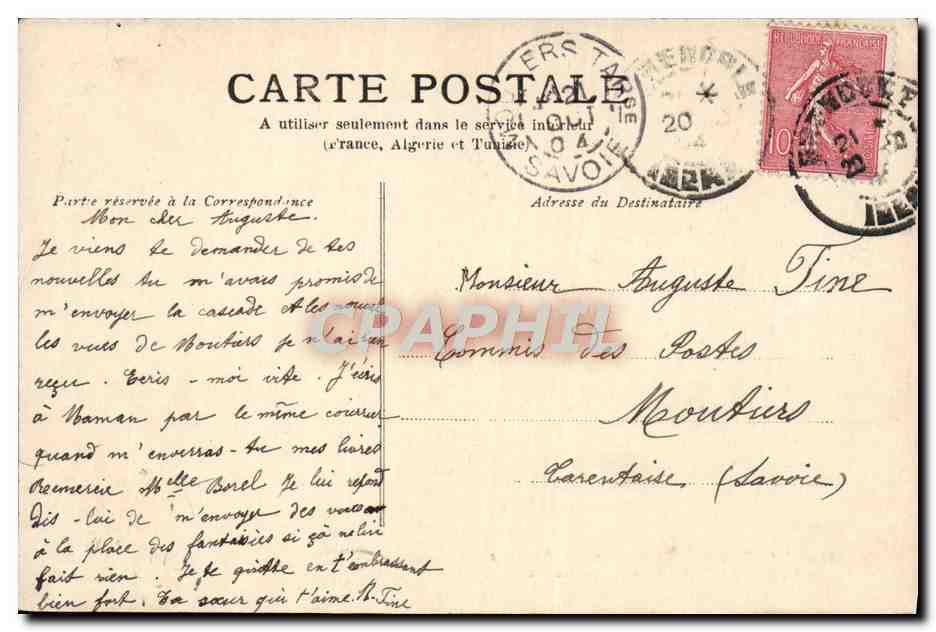 CARTE POSTALE
A utiliser seulement dans le service intérieur
(France, Algérie et Tunisie)
REPUBLIQUE FRANÇAISE
10
SAVOIE
20
21
Partie réservée à la Correspondance
Adresse du Destinataire
Mon cher Auguste.
Je viens te demander de tes
nouvelles tu m'avais promis de
m'envoyer la cascade et les
les vues de Moutiers je n'ai rien
reçu. Ecris-moi vite. J'écris
à Maman par le même courrier
quand m'enverras-tu mes livres
Remercie Melle Borel Je lui
dis-lui de m'envoyer des vues
à la place des fantaisies si çà ne lui
fait rien. Je te quitte en t'embrassant
bien fort. Ta sœur qui t'aime. M-Tine
Monsieur Auguste Tine
Commis des Postes
Moutiers
Tarentaise (Savoie)
CPAPHIL